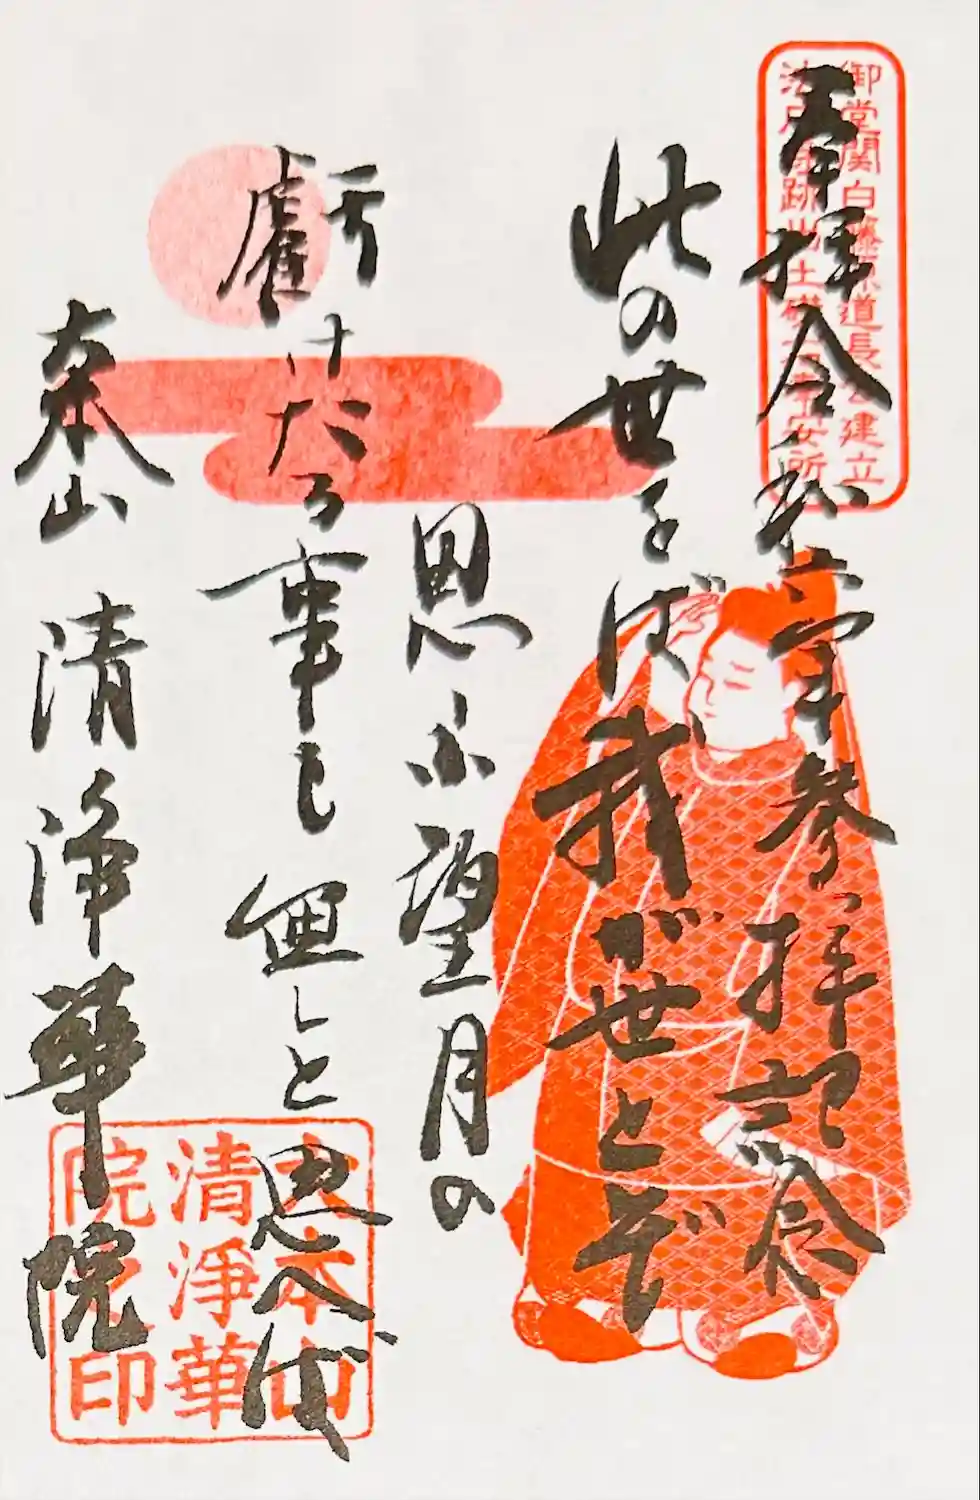 御堂関白藤原道長公建立
法成寺跡出土礎石奉安所
奉拝 令和六年参拝記念
此の世をば我が世とぞ
思ふ望月の
虧けたる事も無しと思へば
大本山 清浄華院
大本山
清淨華
院之印